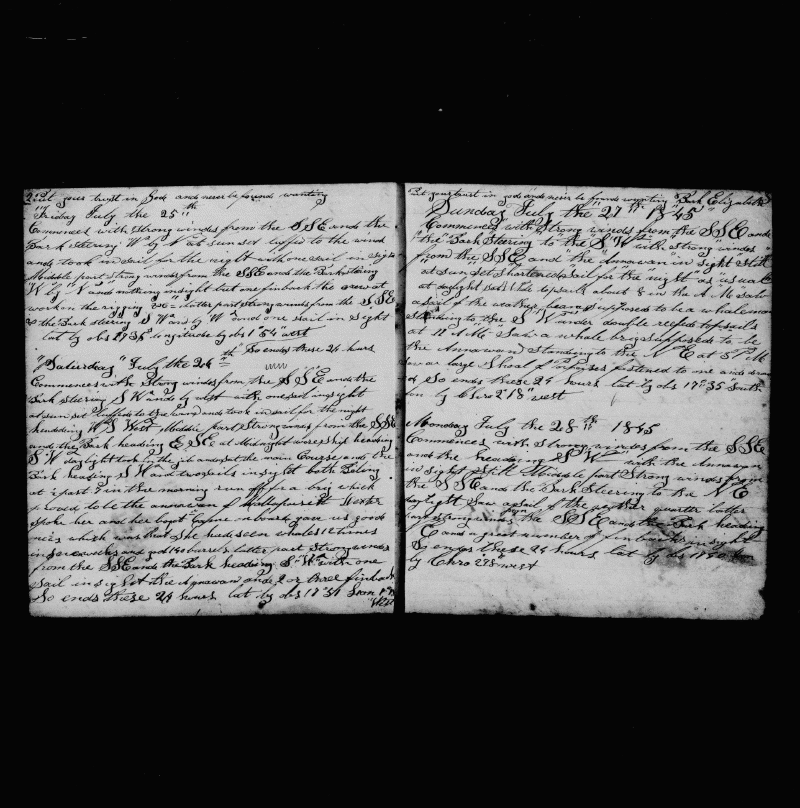 Put your trust in God and never be found wanting
Friday July the 25th
Commences with strong winds from the SSE and the
Bark steering W by N at sunset luffed to the wind
and took in sail for the night with one sail in sight
Middle part strong winds from the SSE and the Bark steering
W by N and nothing in sight but one finback the crew at
work on the rigging &c latter part strong winds from the SSE
& the Bark steering S W and by W and one sail in sight
lat by obs longitude by obs 1°54 west
So ends these 24 hours
Saturday July the 26th
Commences with strong winds from the SSE and the
Bark steering S W and by west with one sail in sight
at sun set luffed to the wind and took in sail for the night
heading W S West Middle part strong winds from the SSE
and the Bark heading E SE at Midnight wore ship heading
S W daylight took in the jib and set the main Course and the
Bark heading S W and two sails in sight both Belong
at ½ part 7 in the morning run off for a brig which
proved to be the annawan of Mattapoisett
spoke her and her boat came on board gave us good
news which was that she had seen whales 12 times
in six weeks and got 140 barrels latter part strong winds
from the SSE and the Bark heading S W with one
sail in sight the Annawan and 2 or three finbacks
So ends these 24 hours lat by obs 17°54 Lon
West
Put your trust in god and never be found wanting Bark Elizabeth
Sunday July the 27th 1845
Commences with strong winds from the SSE and
the Bark Steering to the S W with strong winds
from the SSE and the Annawan in sight Still
at sun set Shortened sail for the night as usual
at daylight set the topsails about 8 in the A M Saw
a sail of the weather beam supposed to be a whaleman
Standing to the S W under double reefed topsails
at 11 A M Saw a whale brig supposed to be
the Annawan standing to the N E at 5 P M
saw a large Shoal of Porpoises fastened to one and
& So ends these 24 hours lat by obs 17°35 South
lon by Chro 2°18 west
Monday July the 28th 1845
Commences with strong winds from the SSE
and the heading S W with the Annawan
in sight still Middle part Strong winds from
the SSE and the Bark Steering to the N E
daylight Saw a sail of the weather quarter latter
part strong winds from the SSE and the Bark heading
E and a great number of finbacks in sight
So ends these 24 hours lat by obs
by Chro west